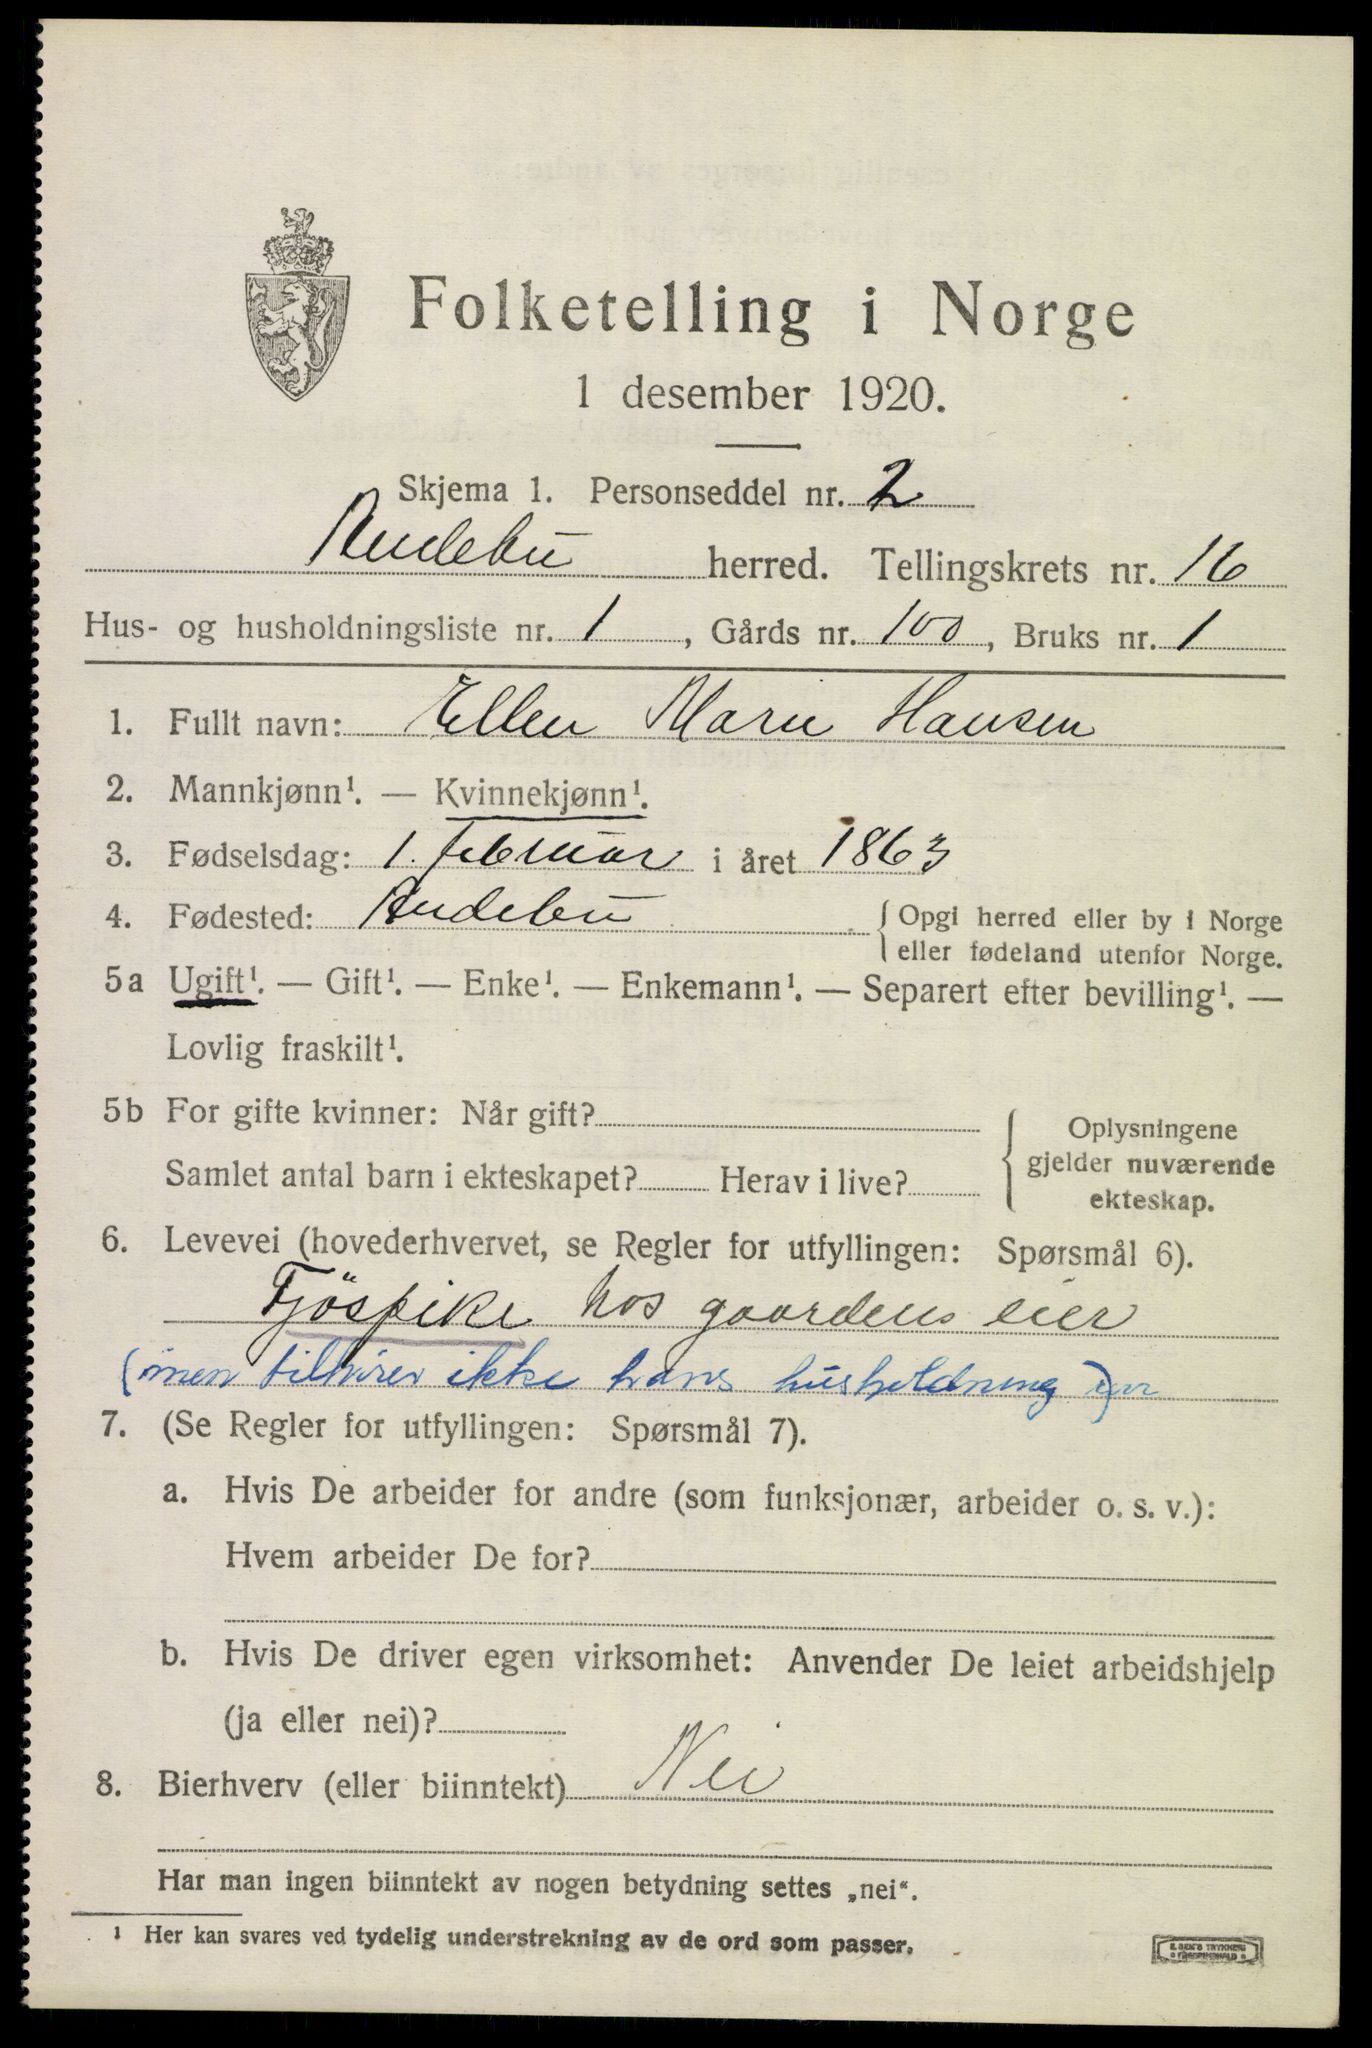 Folketelling i Norge
1 desember 1920.
Skjema 1. Personseddel nr. 2
Andebu herred. Tellingskrets nr. 16
Hus- og husholdningsliste nr. 1, Gårds nr. 100, Bruks nr. 1
1. Fullt navn: Ellen Marie Hansen
2. Mannkjønn¹. — Kvinnekjønn¹.
3. Fødselsdag: 1. februar i året 1863
4. Fødested: Andebu { Opgi herred eller by i Norge
eller fødeland utenfor Norge.
5a Ugift¹. — Gift¹. — Enke¹. — Enkemann¹. — Separert efter bevilling¹. —
Lovlig fraskilt¹.
5b For gifte kvinner: Når gift?
Samlet antal barn i ekteskapet? Herav i live?
Oplysningene
gjelder nuværende
ekteskap.
6. Levevei (hovederhvervet, se Regler for utfyllingen: Spørsmål 6).
Fjöspike hos gaardens eier
(men tilhører ikke hans husholdning)
7. (Se Regler for utfyllingen: Spørsmål 7).
a. Hvis De arbeider for andre (som funksjonær, arbeider o. s. v.):
Hvem arbeider De for?
b. Hvis De driver egen virksomhet: Anvender De leiet arbeidshjelp
(ja eller nei)?
8. Bierhverv (eller biinntekt) Nei
Har man ingen biinntekt av nogen betydning settes „nei“.
¹ Her kan svares ved tydelig understrekning av de ord som passer.